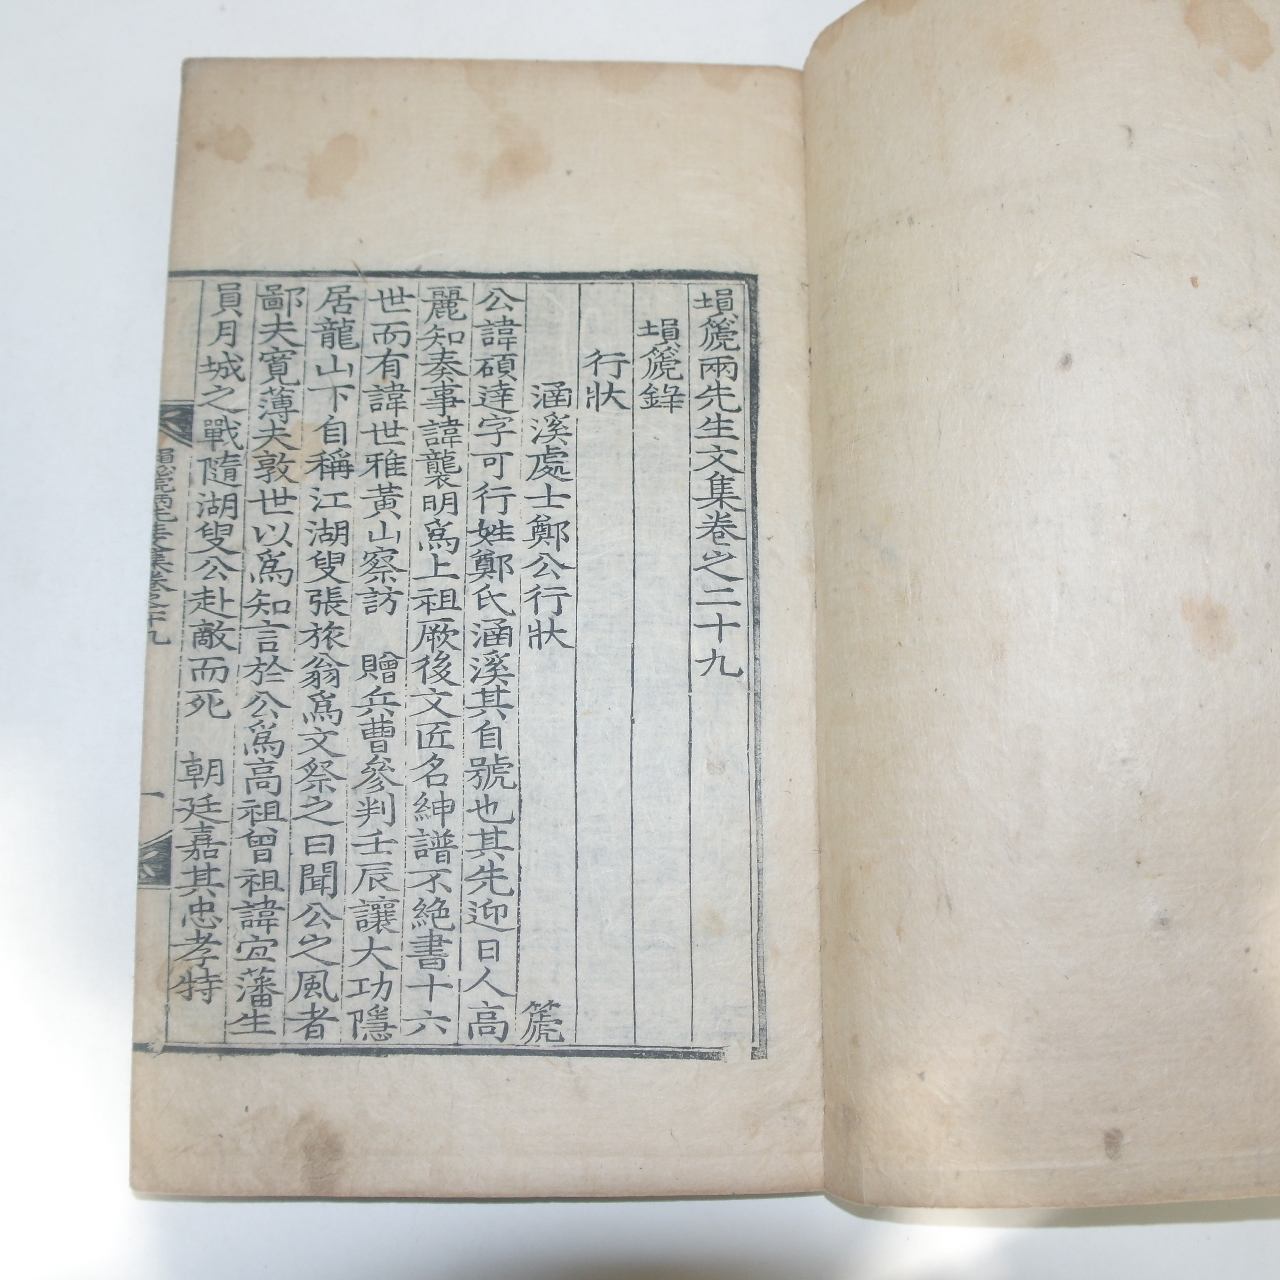 塤篪兩先生文集卷之二十九
塤篪錄
行狀
涵溪處士鄭公行狀 篪
公諱碩達字可行姓鄭氏涵溪其自號也其先迎日人高
麗知奏事諱襲明爲上祖厥後文匠名紳譜不絶書十六
世而有諱世雅黃山察訪 贈兵曹參判壬辰讓大功隱
居龍山下自稱江湖叟張旅翁爲文祭之曰聞公之風者
鄙夫寬薄夫敦世以爲知言於公爲高祖曾祖諱宜藩生
員月城之戰隨湖叟公赴敵而死 朝廷嘉其忠孝特
塤篪兩先生文集卷之二十九
一